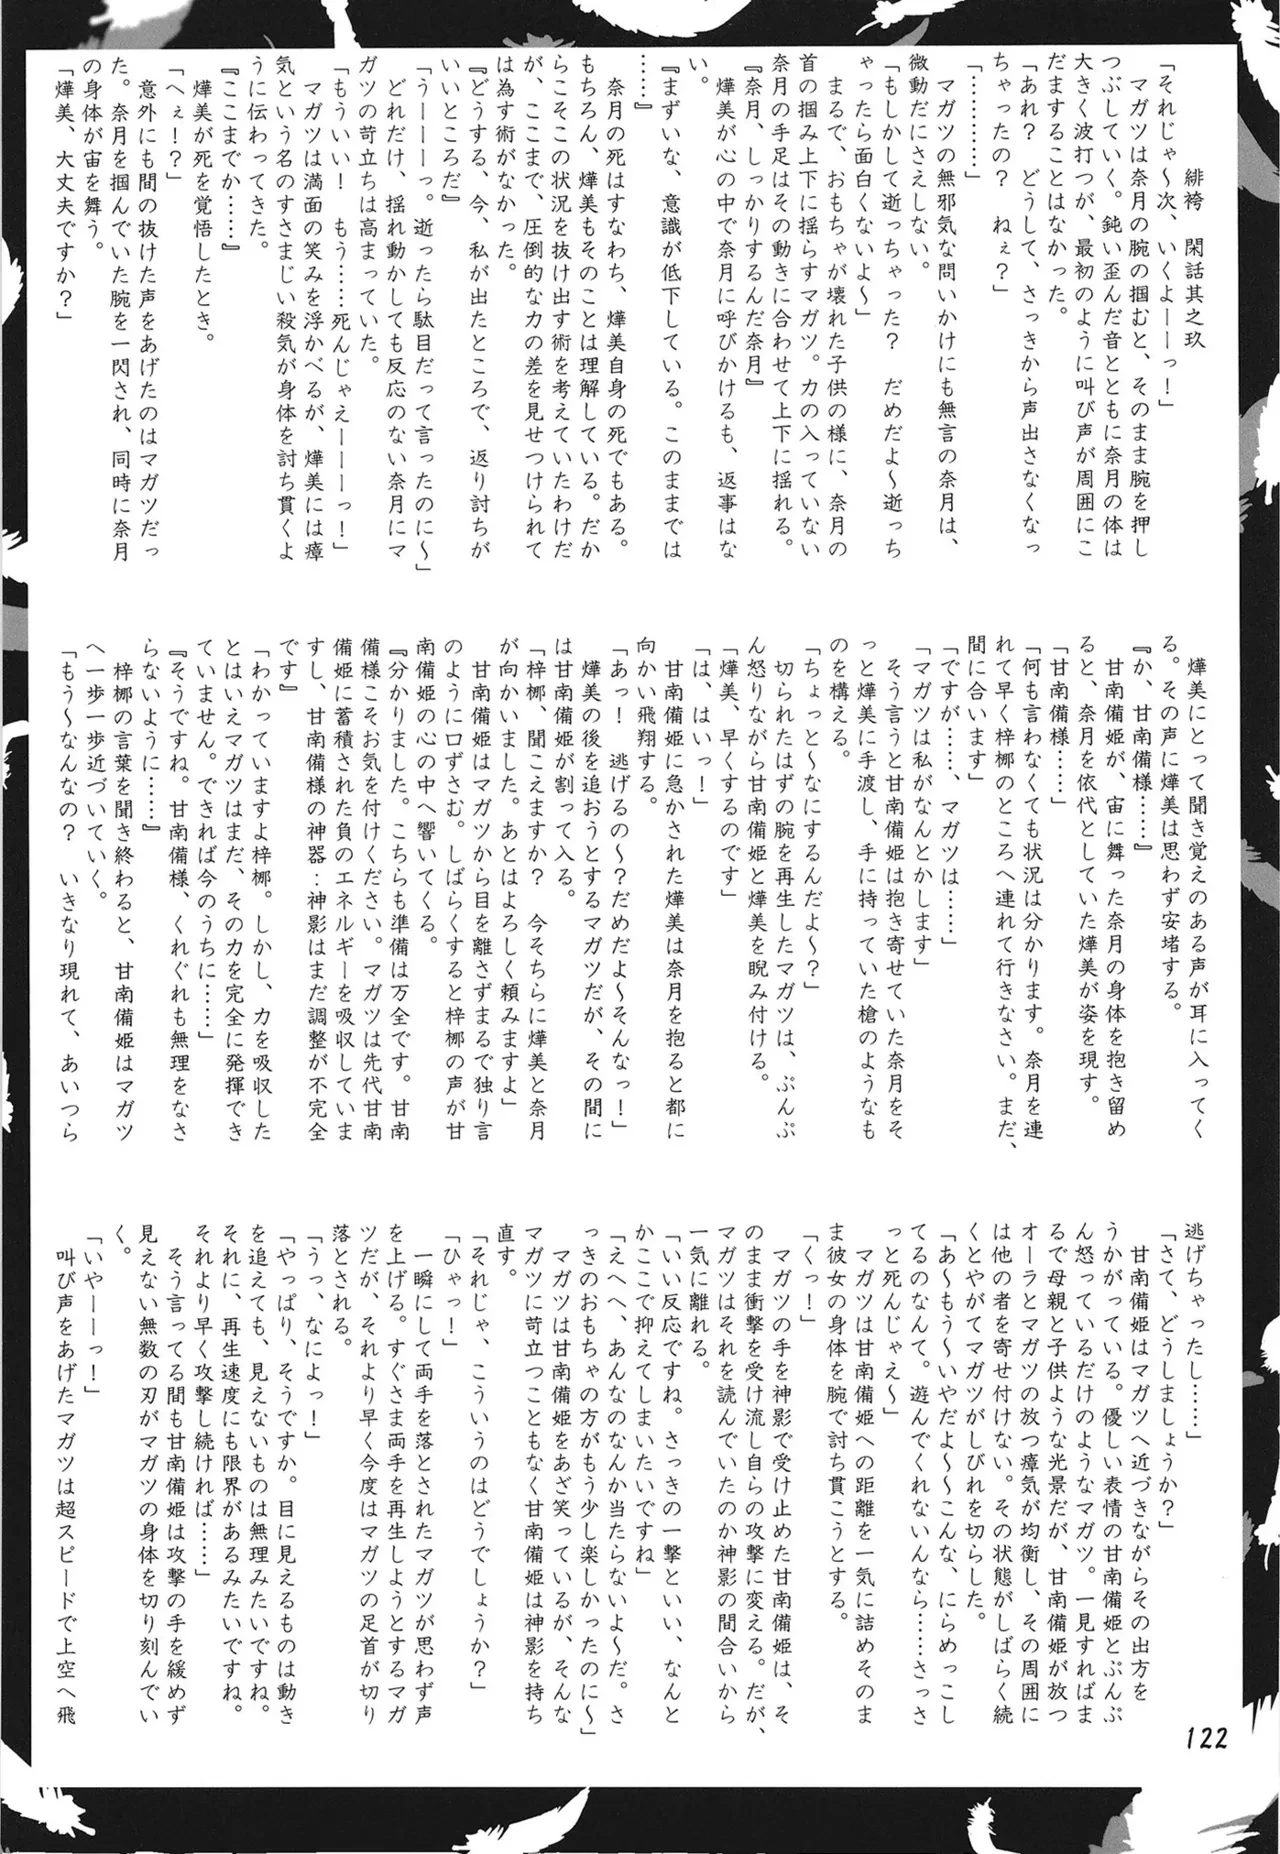 緋袴　閑話其之玖
「それじゃ～次、いくよーーっ！」
マガツは奈月の腕の掴むと、そのまま腕を押し
つぶしていく。鈍い歪んだ音とともに奈月の体は
大きく波打つが、最初のように叫び声が周囲にこ
だますることはなかった。
「あれ？　どうして、さっきから声出さなくなっ
ちゃったの？　ねぇ？」
「…………」
マガツの無邪気な問いかけにも無言の奈月は、
微動だにさえしない。
「もしかして逝っちゃった？　だめだよ～逝っち
ゃったら面白くないよ～」
まるで、おもちゃが壊れた子供の様に、奈月の
首の掴み上下に揺らすマガツ。力の入っていない
奈月の手足はその動きに合わせて上下に揺れる。
『奈月、しっかりするんだ奈月』
燁美が心の中で奈月に呼びかけるも、返事はな
い。
『まずいな、意識が低下している。このままでは
……』
奈月の死はすなわち、燁美自身の死でもある。
もちろん、燁美もそのことは理解している。だか
らこそこの状況を抜け出す術を考えていたわけだ
が、ここまで、圧倒的な力の差を見せつけられて
は為す術がなかった。
『どうする、今、私が出たところで、返り討ちが
いいところだ』
「うーーーっ。逝ったら駄目だって言ったのに～」
どれだけ、揺れ動かしても反応のない奈月にマ
ガツの苛立ちは高まっていた。
「もういい！　もう……死んじゃえーーーっ！」
マガツは満面の笑みを浮かべるが、燁美には瘴
気という名のすさまじい殺気が身体を討ち貫くよ
うに伝わってきた。
『ここまでか……』
燁美が死を覚悟したとき。
「へぇ！？」
意外にも間の抜けた声をあげたのはマガツだっ
た。奈月を掴んでいた腕を一閃され、同時に奈月
の身体が宙を舞う。
「燁美、大丈夫ですか？」
燁美にとって聞き覚えのある声が耳に入ってく
る。その声に燁美は思わず安堵する。
『か、甘南備様……』
甘南備姫が、宙に舞った奈月の身体を抱き留め
ると、奈月を依代としていた燁美が姿を現す。
「甘南備様……」
「何も言わなくても状況は分かります。奈月を連
れて早く梓梛のところへ連れて行きなさい。まだ、
間に合います」
「ですが……、マガツは……」
「マガツは私がなんとかします」
そう言うと甘南備姫は抱き寄せていた奈月をそ
っと燁美に手渡し、手に持っていた槍のようなも
のを構える。
「ちょっと～なにするんだよ～？」
切られたはずの腕を再生したマガツは、ぷんぷ
ん怒りながら甘南備姫と燁美を睨み付ける。
「燁美、早くするのです」
「は、はいっ！」
甘南備姫に急かされた燁美は奈月を抱ると都に
向かい飛翔する。
「あっ！　逃げるの～？だめだよ～そんなっ！」
燁美の後を追おうとするマガツだが、その間に
は甘南備姫が割って入る。
「梓梛、聞こえますか？　今そちらに燁美と奈月
が向かいました。あとはよろしく頼みますよ」
甘南備姫はマガツから目を離さずまるで独り言
のように口ずさむ。しばらくすると梓梛の声が甘
南備姫の心の中へ響いてくる。
『分かりました。こちらも準備は万全です。甘南
備様こそお気を付けください。マガツは先代甘南
備姫に蓄積された負のエネルギーを吸収していま
すし、甘南備様の神器：神影はまだ調整が不完全
です』
「わかっていますよ梓梛。しかし、力を吸収した
とはいえマガツはまだ、その力を完全に発揮でき
ていません。できれば今のうちに……」
『そうですね。甘南備様、くれぐれも無理をなさ
らないように……』
梓梛の言葉を聞き終わると、甘南備姫はマガツ
へ一歩一歩近づいていく。
「もう～なんなの？　いきなり現れて、あいつら
逃げちゃったし……」
「さて、どうしましょうか？」
甘南備姫はマガツへ近づきながらその出方を
うかがっている。優しい表情の甘南備姫とぷんぷ
ん怒っているだけのようなマガツ。一見すればま
るで母親と子供ような光景だが、甘南備姫が放つ
オーラとマガツの放つ瘴気が均衡し、その周囲に
は他の者を寄せ付けない。その状態がしばらく続
くとやがてマガツがしびれを切らした。
「あ～もう～いやだよ～～こんな、にらめっこし
てるのなんて。遊んでくれないんなら……さっさ
っと死んじゃえ～」
マガツは甘南備姫への距離を一気に詰めそのま
ま彼女の身体を腕で討ち貫こうとする。
「くっ！」
マガツの手を神影で受け止めた甘南備姫は、そ
のまま衝撃を受け流し自らの攻撃に変える。だが、
マガツはそれを読んでいたのか神影の間合いから
一気に離れる。
「いい反応ですね。さっきの一撃といい、なんと
かここで抑えてしまいたいですね」
「えへへ、あんなのなんか当たらないよ～だ。さ
っきのおもちゃの方がもう少し楽しかったのに～」
マガツは甘南備姫をあざ笑っているが、そんな
マガツに苛立つこともなく甘南備姫は神影を持ち
直す。
「それじゃ、こういうのはどうでしょうか？」
「ひゃっ！」
一瞬にして両手を落とされたマガツが思わず声
を上げる。すぐさま両手を再生しようとするマガ
ツだが、それより早く今度はマガツの足首が切り
落とされる。
「うっ、なによっ！」
「やっぱり、そうですか。目に見えるものは動き
を追えても、見えないものは無理みたいですね。
それに、再生速度にも限界があるみたいですね。
それより早く攻撃し続ければ……」
そう言ってる間も甘南備姫は攻撃の手を緩めず
見えない無数の刃がマガツの身体を切り刻んでい
く。
「いやーーっ！」
叫び声をあげたマガツは超スピードで上空へ飛
122